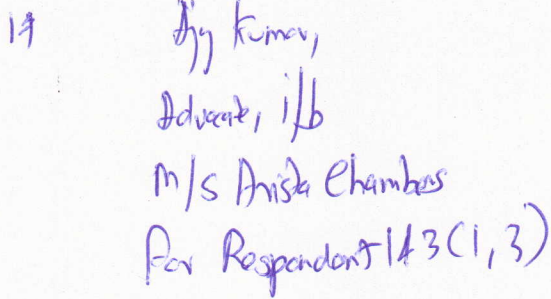 17 Ajy Kumar,
Advocate, i/b
M/S Arista Chambers
For Respondent 1 & 3 (1, 3)